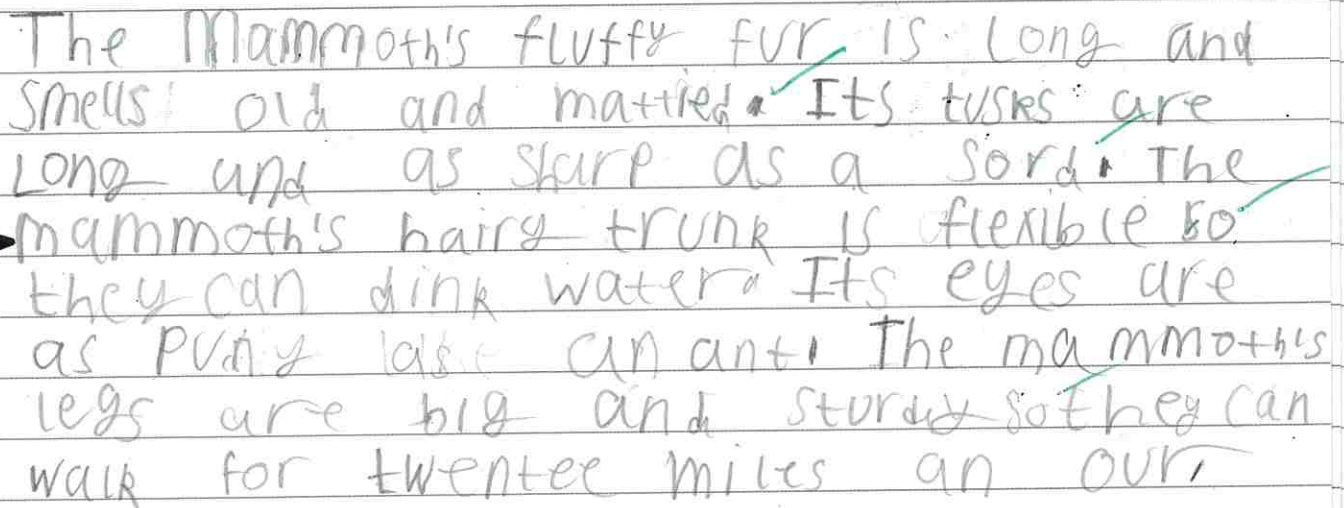 The Mammoth's fluffy fur is long and
smells old and mattied. Its tusks are
Long and as sharp as a sord. The
mammoth's hairy trunk is flexible so
they can dink water. Its eyes are
as puny as an ant. The mammoth's
legs are big and sturdy so they can
walk for twentee miles an our.